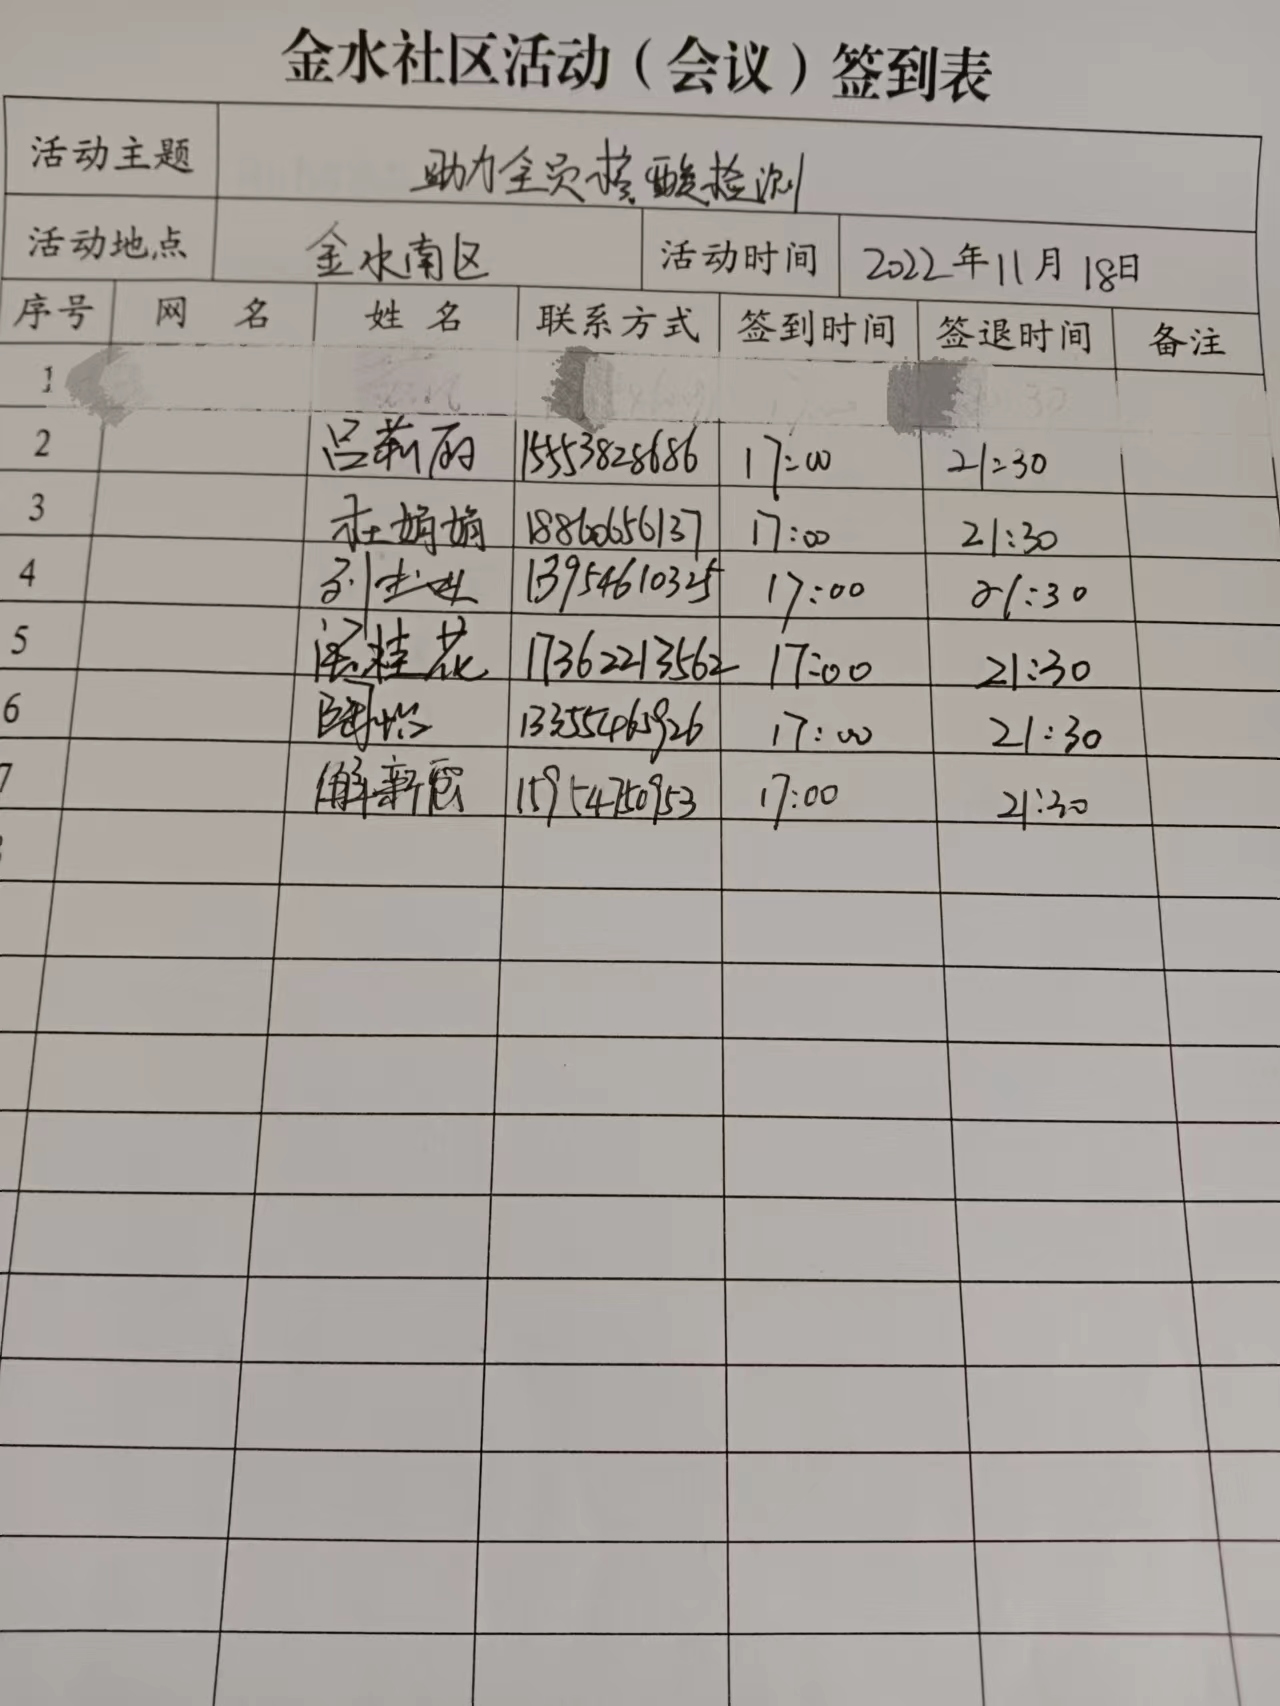 金水社区活动（会议）签到表
活动主题 助力全员核酸检测
活动地点 金水南区 活动时间 2022年11月18日
序号 网 名 姓 名 联系方式 签到时间 签退时间 备注
1
2 吕莉丽 15553828686 17:00 21:30
3 杜娟娟 18860656137 17:00 21:30
4 13954610325 17:00 21:30
5 桂花 17362213562 17:00 21:30
6 13355465926 17:00 21:30
7 解新霞 15954750953 17:00 21:30